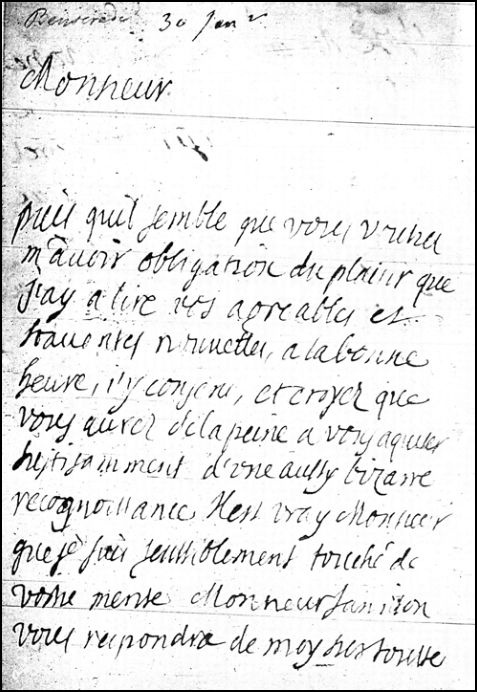 Benserade 30 Janr
Monsieur
puis quil semble que vous vouliez
m'auoir obligation du plaisir que
j'ay a lire vos agreables et
nouuelles, a la bonne
heure, j'y consens, et croyez que
vous aurez de la peine a vous aquiter
suffisamment d'vne aussy bizarre
recognoissance. Il est vray Monsieur
que je suis sensiblement touché de
vostre merite Monsieur
vous respondra de moy sur toutte